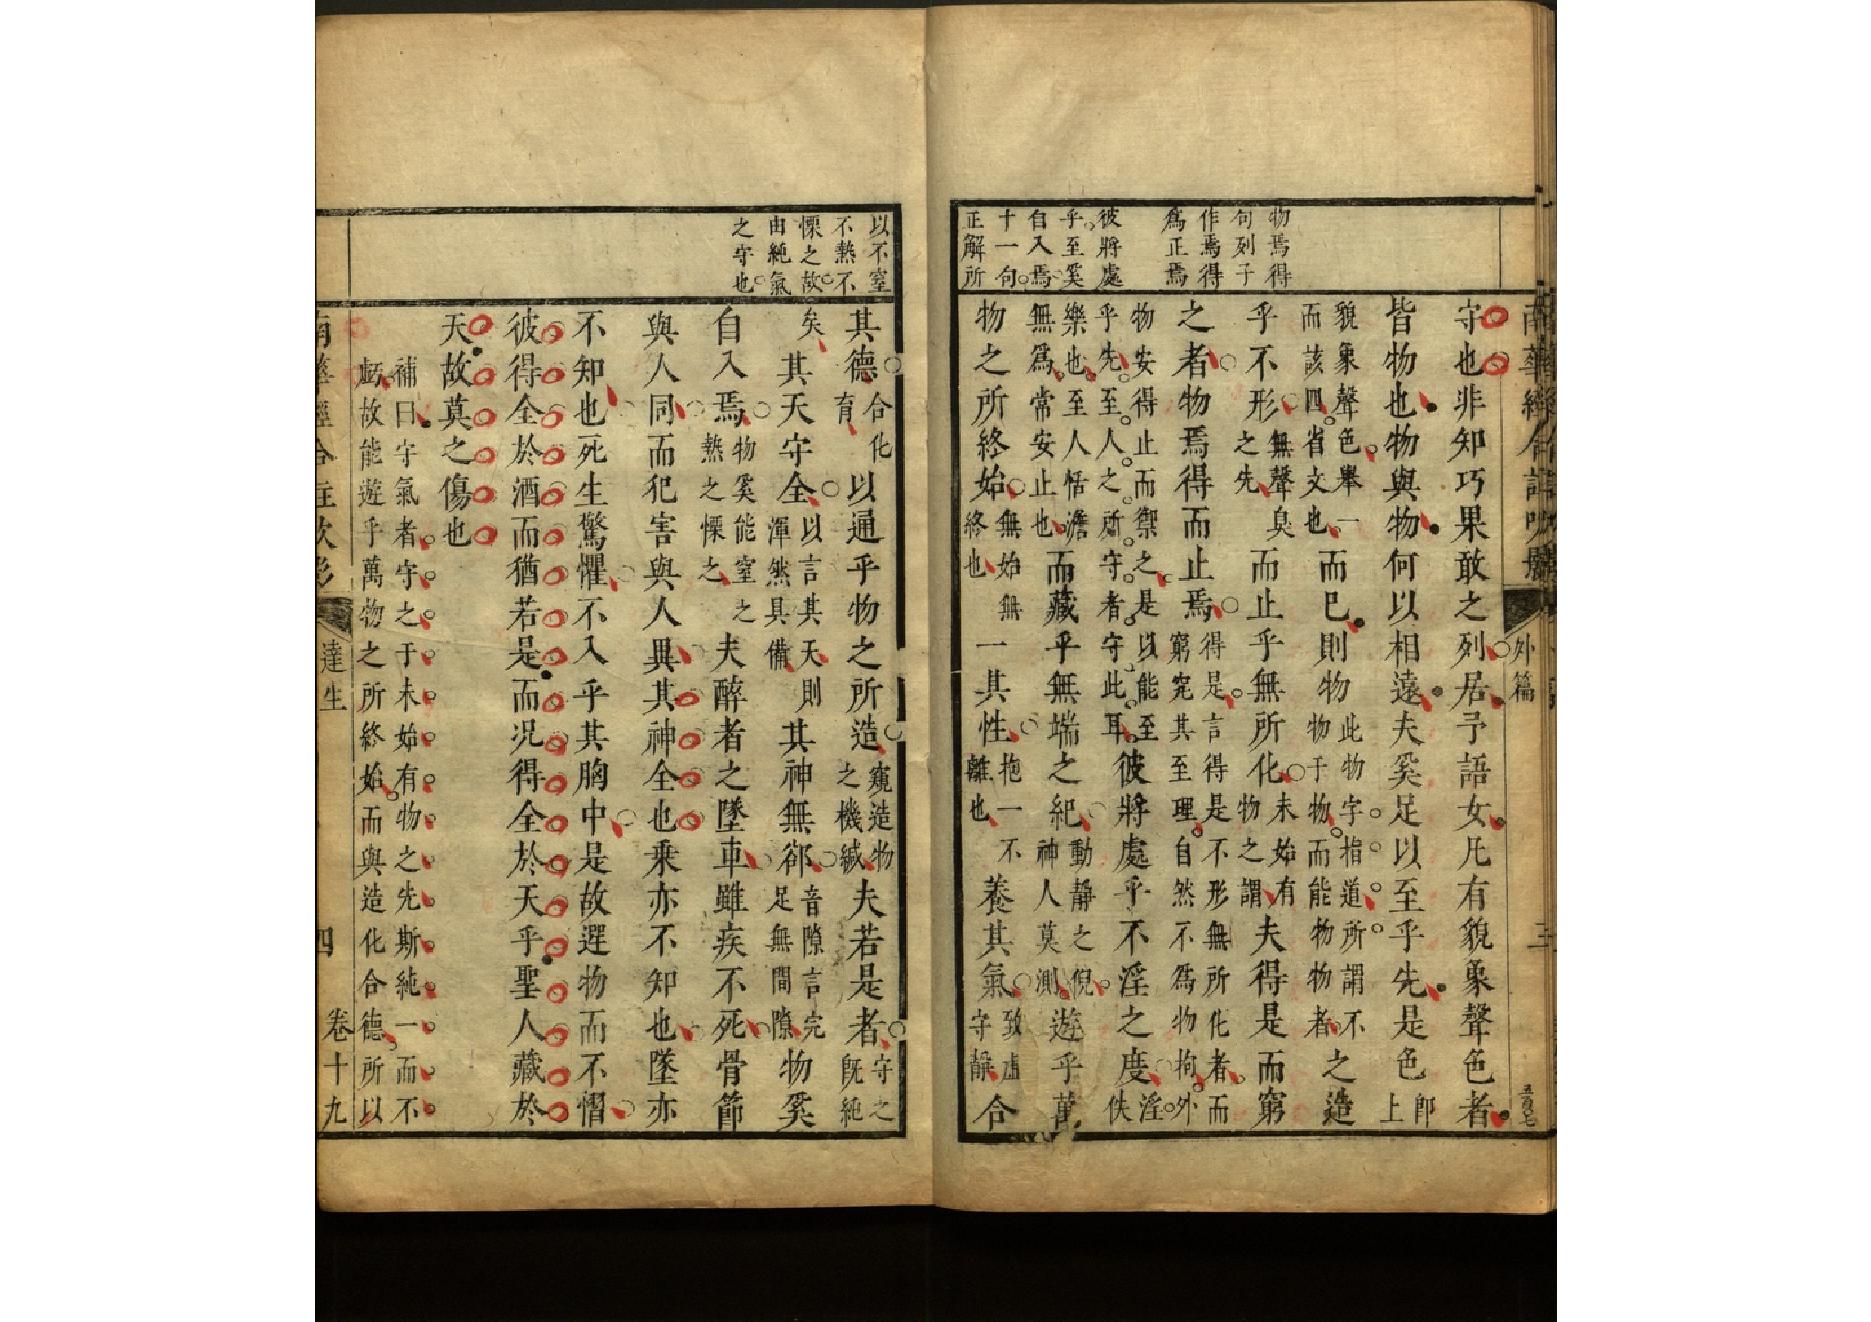 物焉得
句列子
作焉得
爲正焉
彼將處
乎至奚
自入焉
十一句
正解所
外篇
守也非知巧果敢之列居予語女凡有貌象聲色者
皆物也物與物何以相遠夫奚足以至乎先是色卽上
貌象聲色舉一而該四省文也而已則物此物字指道所謂不物于物而能物物者之造
乎不形無聲臭之先而止乎無所化未始有物之謂夫得是而窮
之者物焉得而止焉得是言得是不形無所化者而窮究其至理自然不爲物拘外
物安得止而禦之是以能至乎先至人之所守者守此耳彼將處乎不淫之度淫佚
樂也至人恬澹無爲常安止也而藏乎無端之紀動靜之倪神人莫測遊乎萬
物之所終始無始無終也一其性抱一不離也養其氣致虛守靜合
以不窒
不熱不
慄之故
由純氣
之守也
其德合化育以通乎物之所造窺造物之機緘夫若是者守之既純
矣其天守全以言其天則渾然具備其神無郤音隙言完足無間隙物奚
自入焉物奚能窒之熱之慄之夫醉者之墜車雖疾不死骨節
與人同而犯害與人異其神全也乘亦不知也墜亦
不知也死生驚懼不入乎其胸中是故遻物而不慴
彼得全於酒而猶若是而况得全於天乎聖人藏於
天故莫之傷也
補曰守氣者守之于未始有物之先斯純一而不
虧故能遊乎萬物之所終始而與造化合德所以
達生
四
卷十九